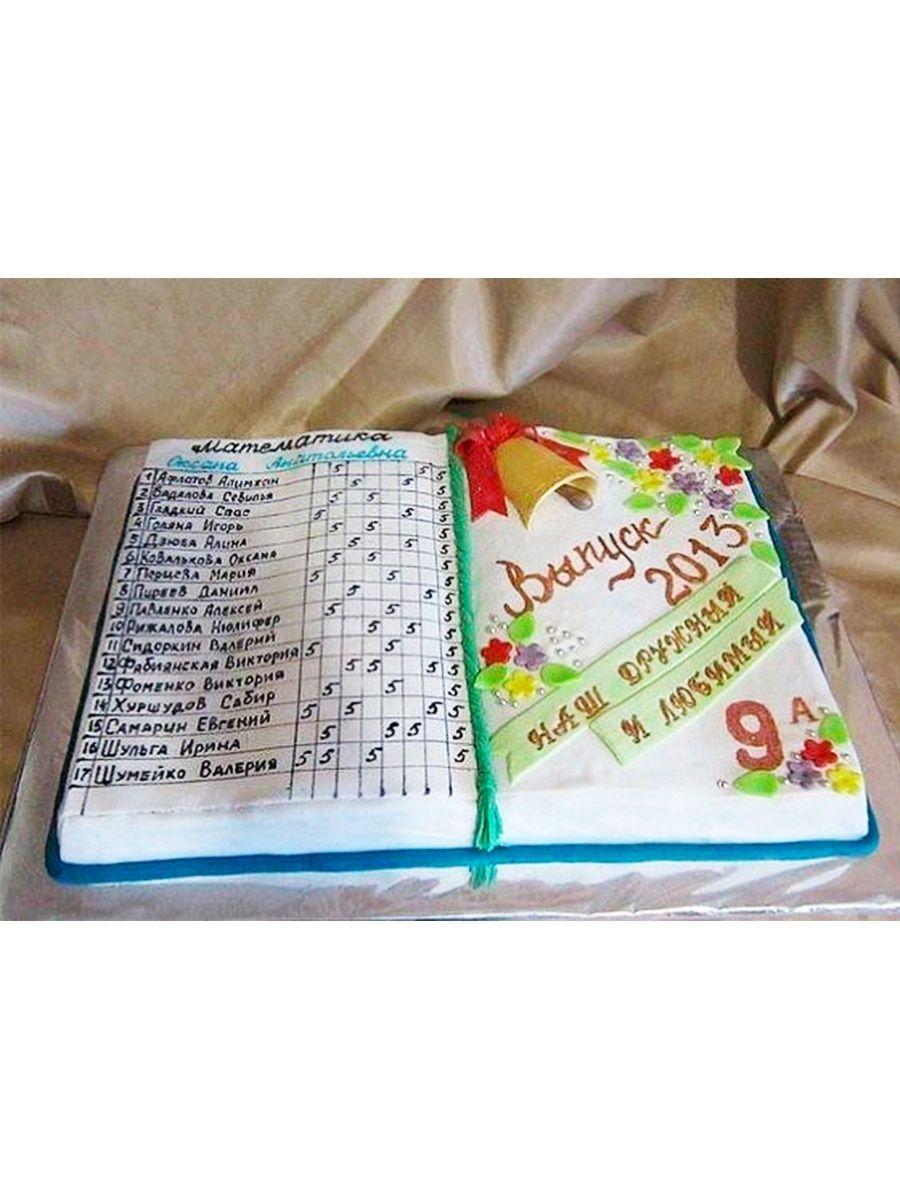 Математика
Оксана Анатольевна
1 Афлатов Алимхан 5 5 5
2 Бадалова Севилья 5 5 5
3 Гладкий Спас 5 5 5
4 Голяна Игорь 5 5 5
5 Дзюва Алина 5 5 5
6 Ковалькова Оксана 5 5 5
7 Перцева Мария 5 5 5
8 Пиреев Даниил 5 5 5
9 Павленко Алексей 5 5 5
10 Рижалова Нюлифер 5 5 5
11 Сидоркин Валерий 5 5 5
12 Фабиянская Виктория 5 5 5
13 Фоменко Виктория 5 5 5
14 Хуршудов Сабир 5 5 5
15 Самарин Евгений 5 5 5 5
16 Шульга Ирина 5 5 5
17 Шумейко Валерия 5 5 5
Выпуск
2013
НАШ ДРУЖНЫЙ
И ЛЮБИМЫЙ
9 А